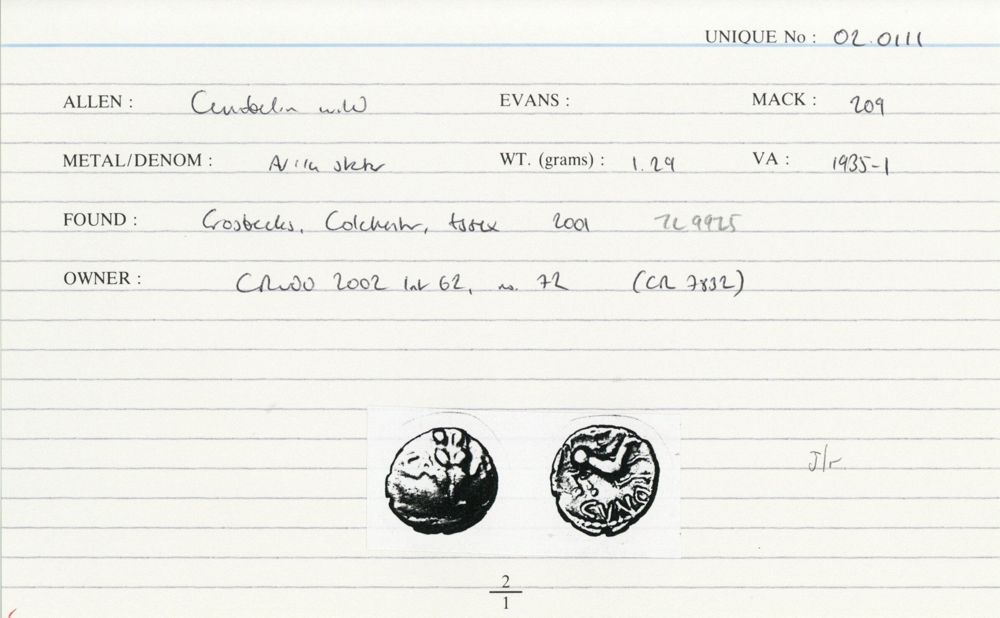 UNIQUE No : 02.0111
ALLEN : Cunobelin wild EVANS : MACK : 209
METAL/DENOM : WT. (grams) : 1.29 VA : 1935-1
FOUND : Gosbecks, Colchester, Essex 2001 TL 9925
OWNER : 2002 62, no. 72 (CR 7832)
CVNO
2
1